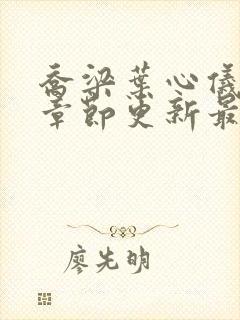 乔梁葉心儀
章節更新最
廖先明